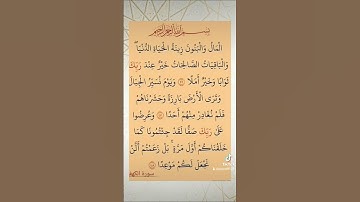 بسم الله الرحمن الرحيم
الْمَالُ وَالْبَنُونَ زِينَةُ الْحَيَاةِ الدُّنْيَا ۖ
وَالْبَاقِيَاتُ الصَّالِحَاتُ خَيْرٌ عِندَ رَبِّكَ
ثَوَابًا وَخَيْرٌ أَمَلًا وَيَوْمَ نُسَيِّرُ الْجِبَالَ
وَتَرَى الْأَرْضَ بَارِزَةً وَحَشَرْنَاهُمْ
فَلَمْ نُغَادِرْ مِنْهُمْ أَحَدًا وَعُرِضُوا
عَلَىٰ رَبِّكَ صَفًّا لَّقَدْ جِئْتُمُونَا كَمَا
خَلَقْنَاكُمْ أَوَّلَ مَرَّةٍ ۚ بَلْ زَعَمْتُمْ أَلَّن
نَّجْعَلَ لَكُم مَّوْعِدًا
سورة الكهف